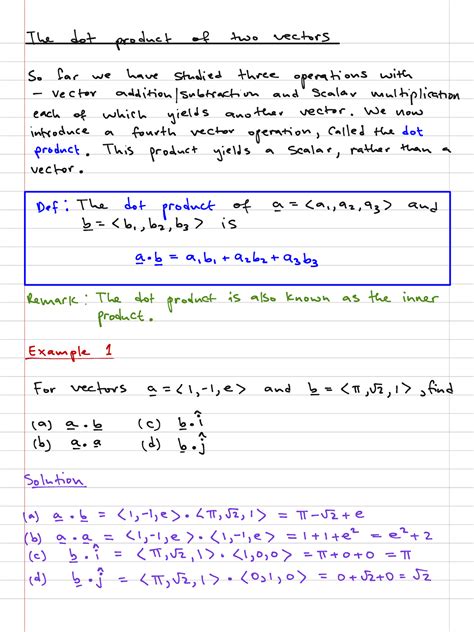 The dot product of two vectors
So far we have studied three operations with
- vector addition/subtraction and scalar multiplication
each of which yields another vector. We now
introduce a fourth vector operation, called the dot
product. This product yields a scalar, rather than a
vector.
Def: The dot product of a = <a₁, a₂, a₃> and
b = <b₁, b₂, b₃> is
a·b = a₁b₁ + a₂b₂ + a₃b₃
Remark: The dot product is also known as the inner
product.
Example 1
For vectors a = <1,-1,e> and b = <π,√2,1>, find
(a) a·b (c) b·î
(b) a·a (d) b·ĵ
Solution
(a) a·b = <1,-1,e>·<π,√2,1> = π-√2+e
(b) a·a = <1,-1,e>·<1,-1,e> = 1+1+e² = e²+2
(c) b·î = <π,√2,1>·<1,0,0> = π+0+0 = π
(d) b·ĵ = <π,√2,1>·<0,1,0> = 0+√2+0 = √2